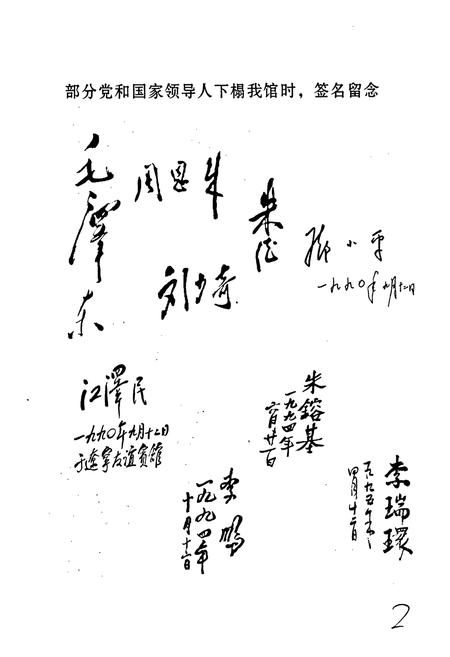 部分党和国家领导人下榻我馆时，签名留念
毛泽东
周恩来
朱德
刘少奇
邓小平
一九九〇年九月十二日
江泽民
一九九〇年九月十二日
于辽宁友谊宾馆
朱鎔基
一九九四年
六月廿一日
李鹏
一九九四年
十月十六日
李瑞環
一九九五年
四月十二日
2